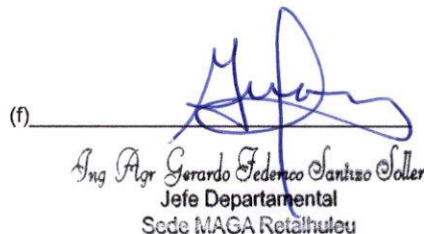 (f)
Ing Agr Gerardo Federico Santizo Soller
Jefe Departamental
Sede MAGA Retalhuleu